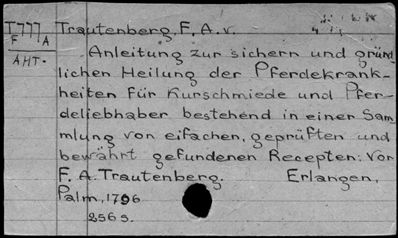 T777 Trautenberg, F. A. v.
F A
AHT.
Anleitung zur sichern und gründ
lichen Heilung der Pferdekrank-
heiten für Kurschmiede und Pfer-
deliebhaber bestehend in einer Sam
mlung von eifachen, geprüften und
bewährt gefundenen Recepten: Vor
F. A. Trautenberg. Erlangen,
Palm, 1796
256 s.